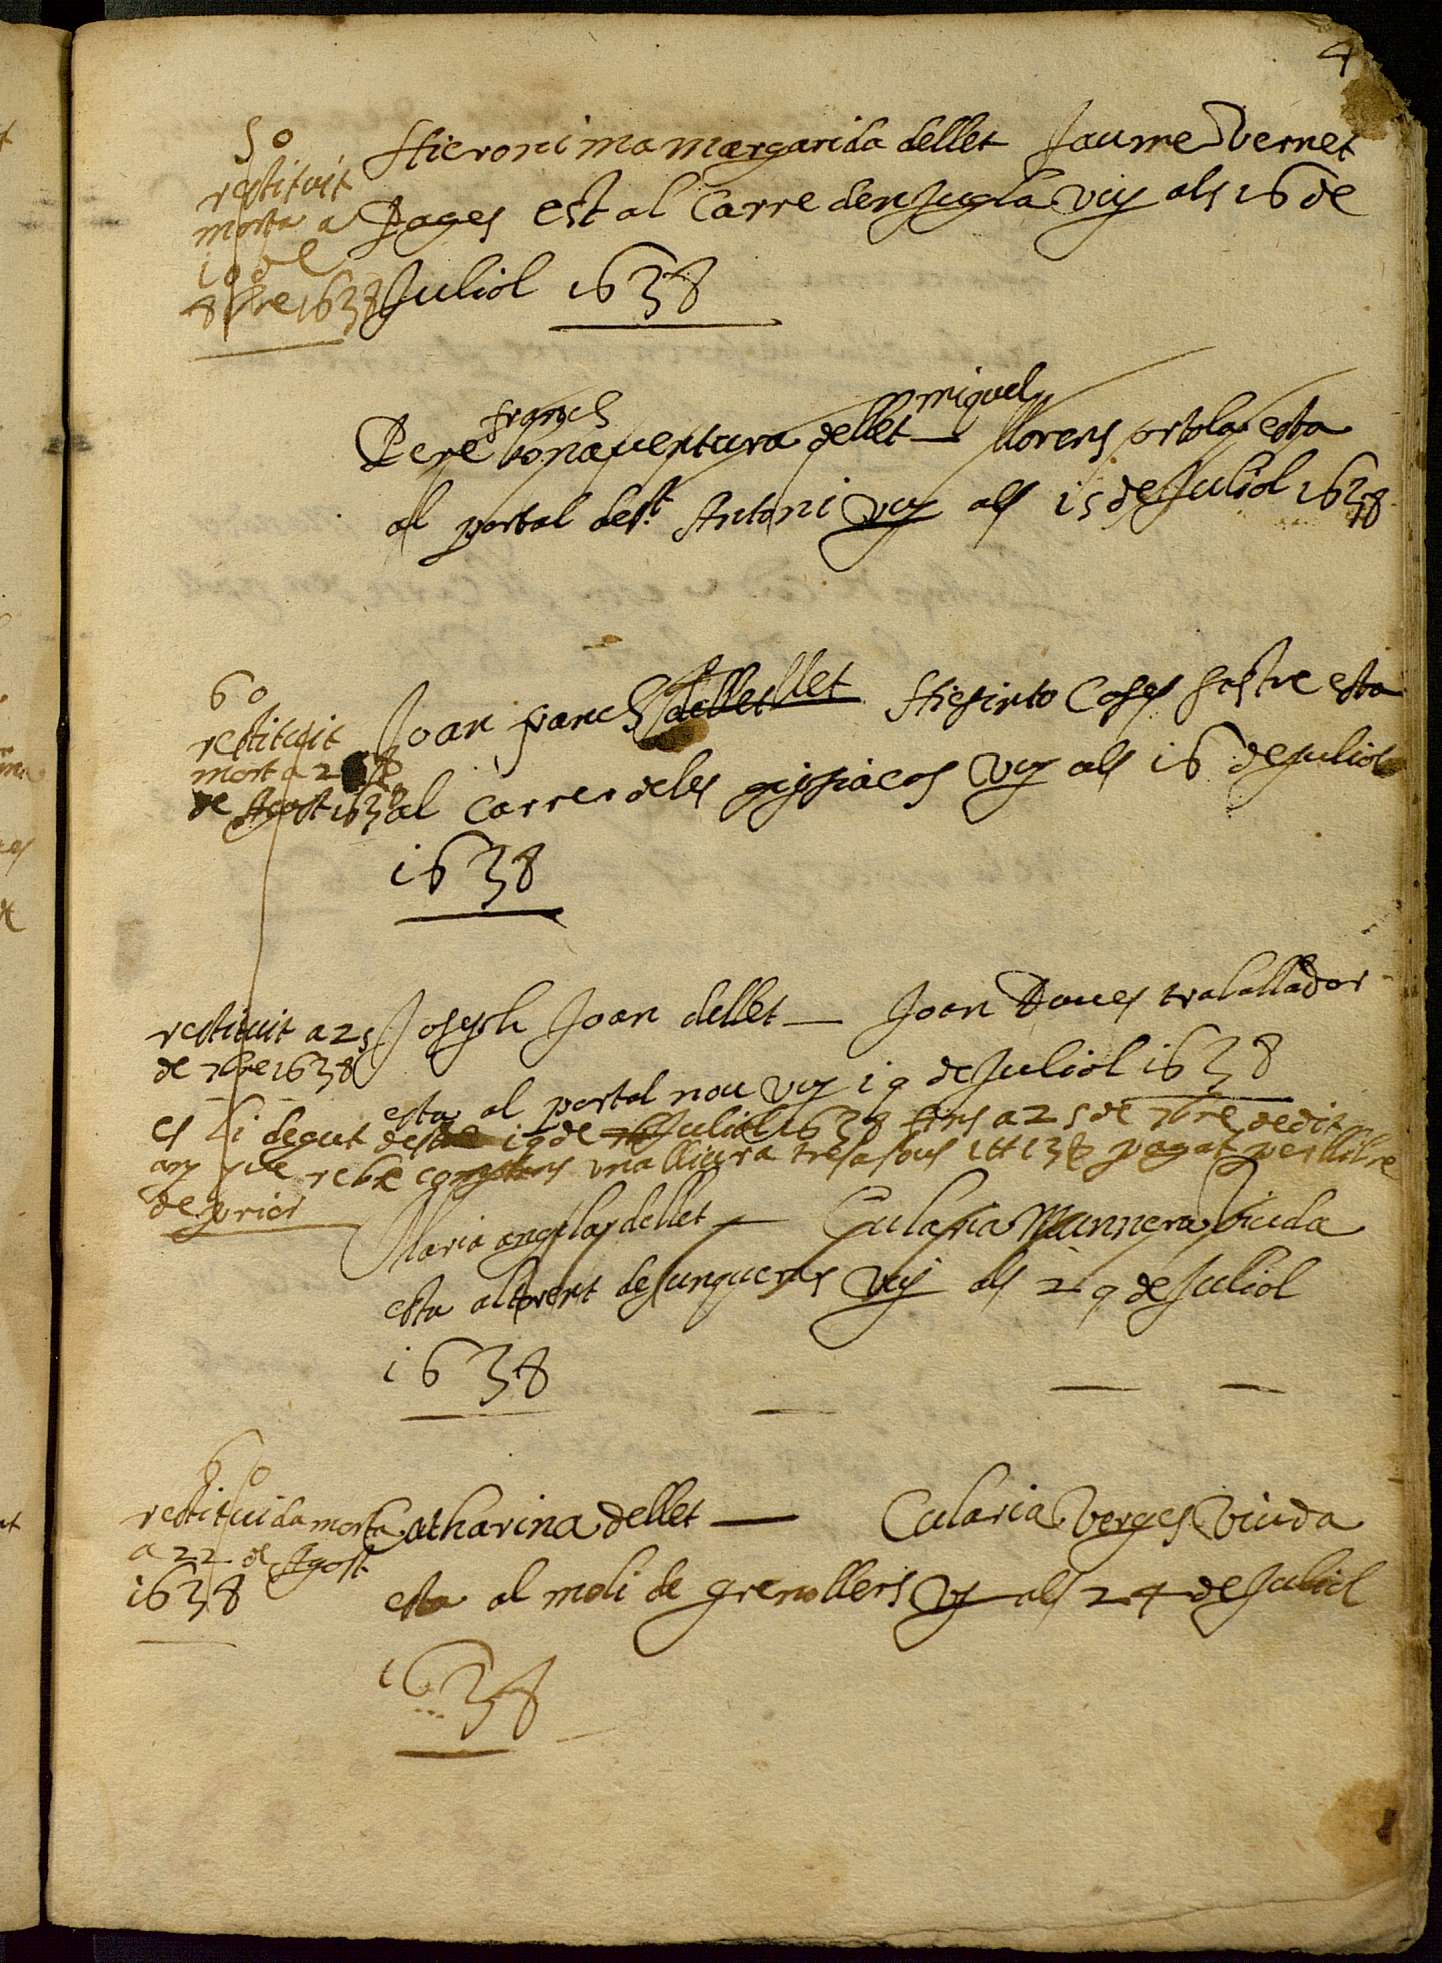 4
50
restituit
morta a
19 de
8bre 1638
Hieronima Margarida dellet Jaume Vernet
Pages est al Carre den Jugla vuy als 16 de
Juliol 1638
franch miquel
Pere bonaventura dellet — llorens ortola esta
al portal de St Antoni vuy als 15 de Juliol 1638
60
restituit
mort a 2
de Agost 1638
Joan franch dellet llet Hiesinto Coses sastre esta
al Carrer de les egipsiacas vuy als 16 de Juliol
1638
restituit a 25
de 7bre 1638
Joseph Joan dellet — Joan Doues traballador
esta al portal nou vuy 19 de Juliol 1638
es li degut des de 19 de Juliol 1638 fins a 25 de 7bre de dit
any que rebe una lliura tres sous 1 ₶ 13 ß pagat per llibre
de prior
Maria angela dellet — Eularia Munnera Viuda
esta al torrent de Junqueras vuy als 29 de Juliol
1638
60
restituida morta
a 22 de Agost
1638
Catharina dellet — Eularia Verges Viuda
esta al moli de grenollers vy als 24 de Juliol
1638